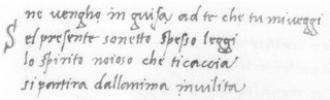 S ne vengho in guisa ad te che tu mi veggi
el presente sonetto spesso leggi
lo spirito noioso che ti caccia
si partira dallanima in vilita